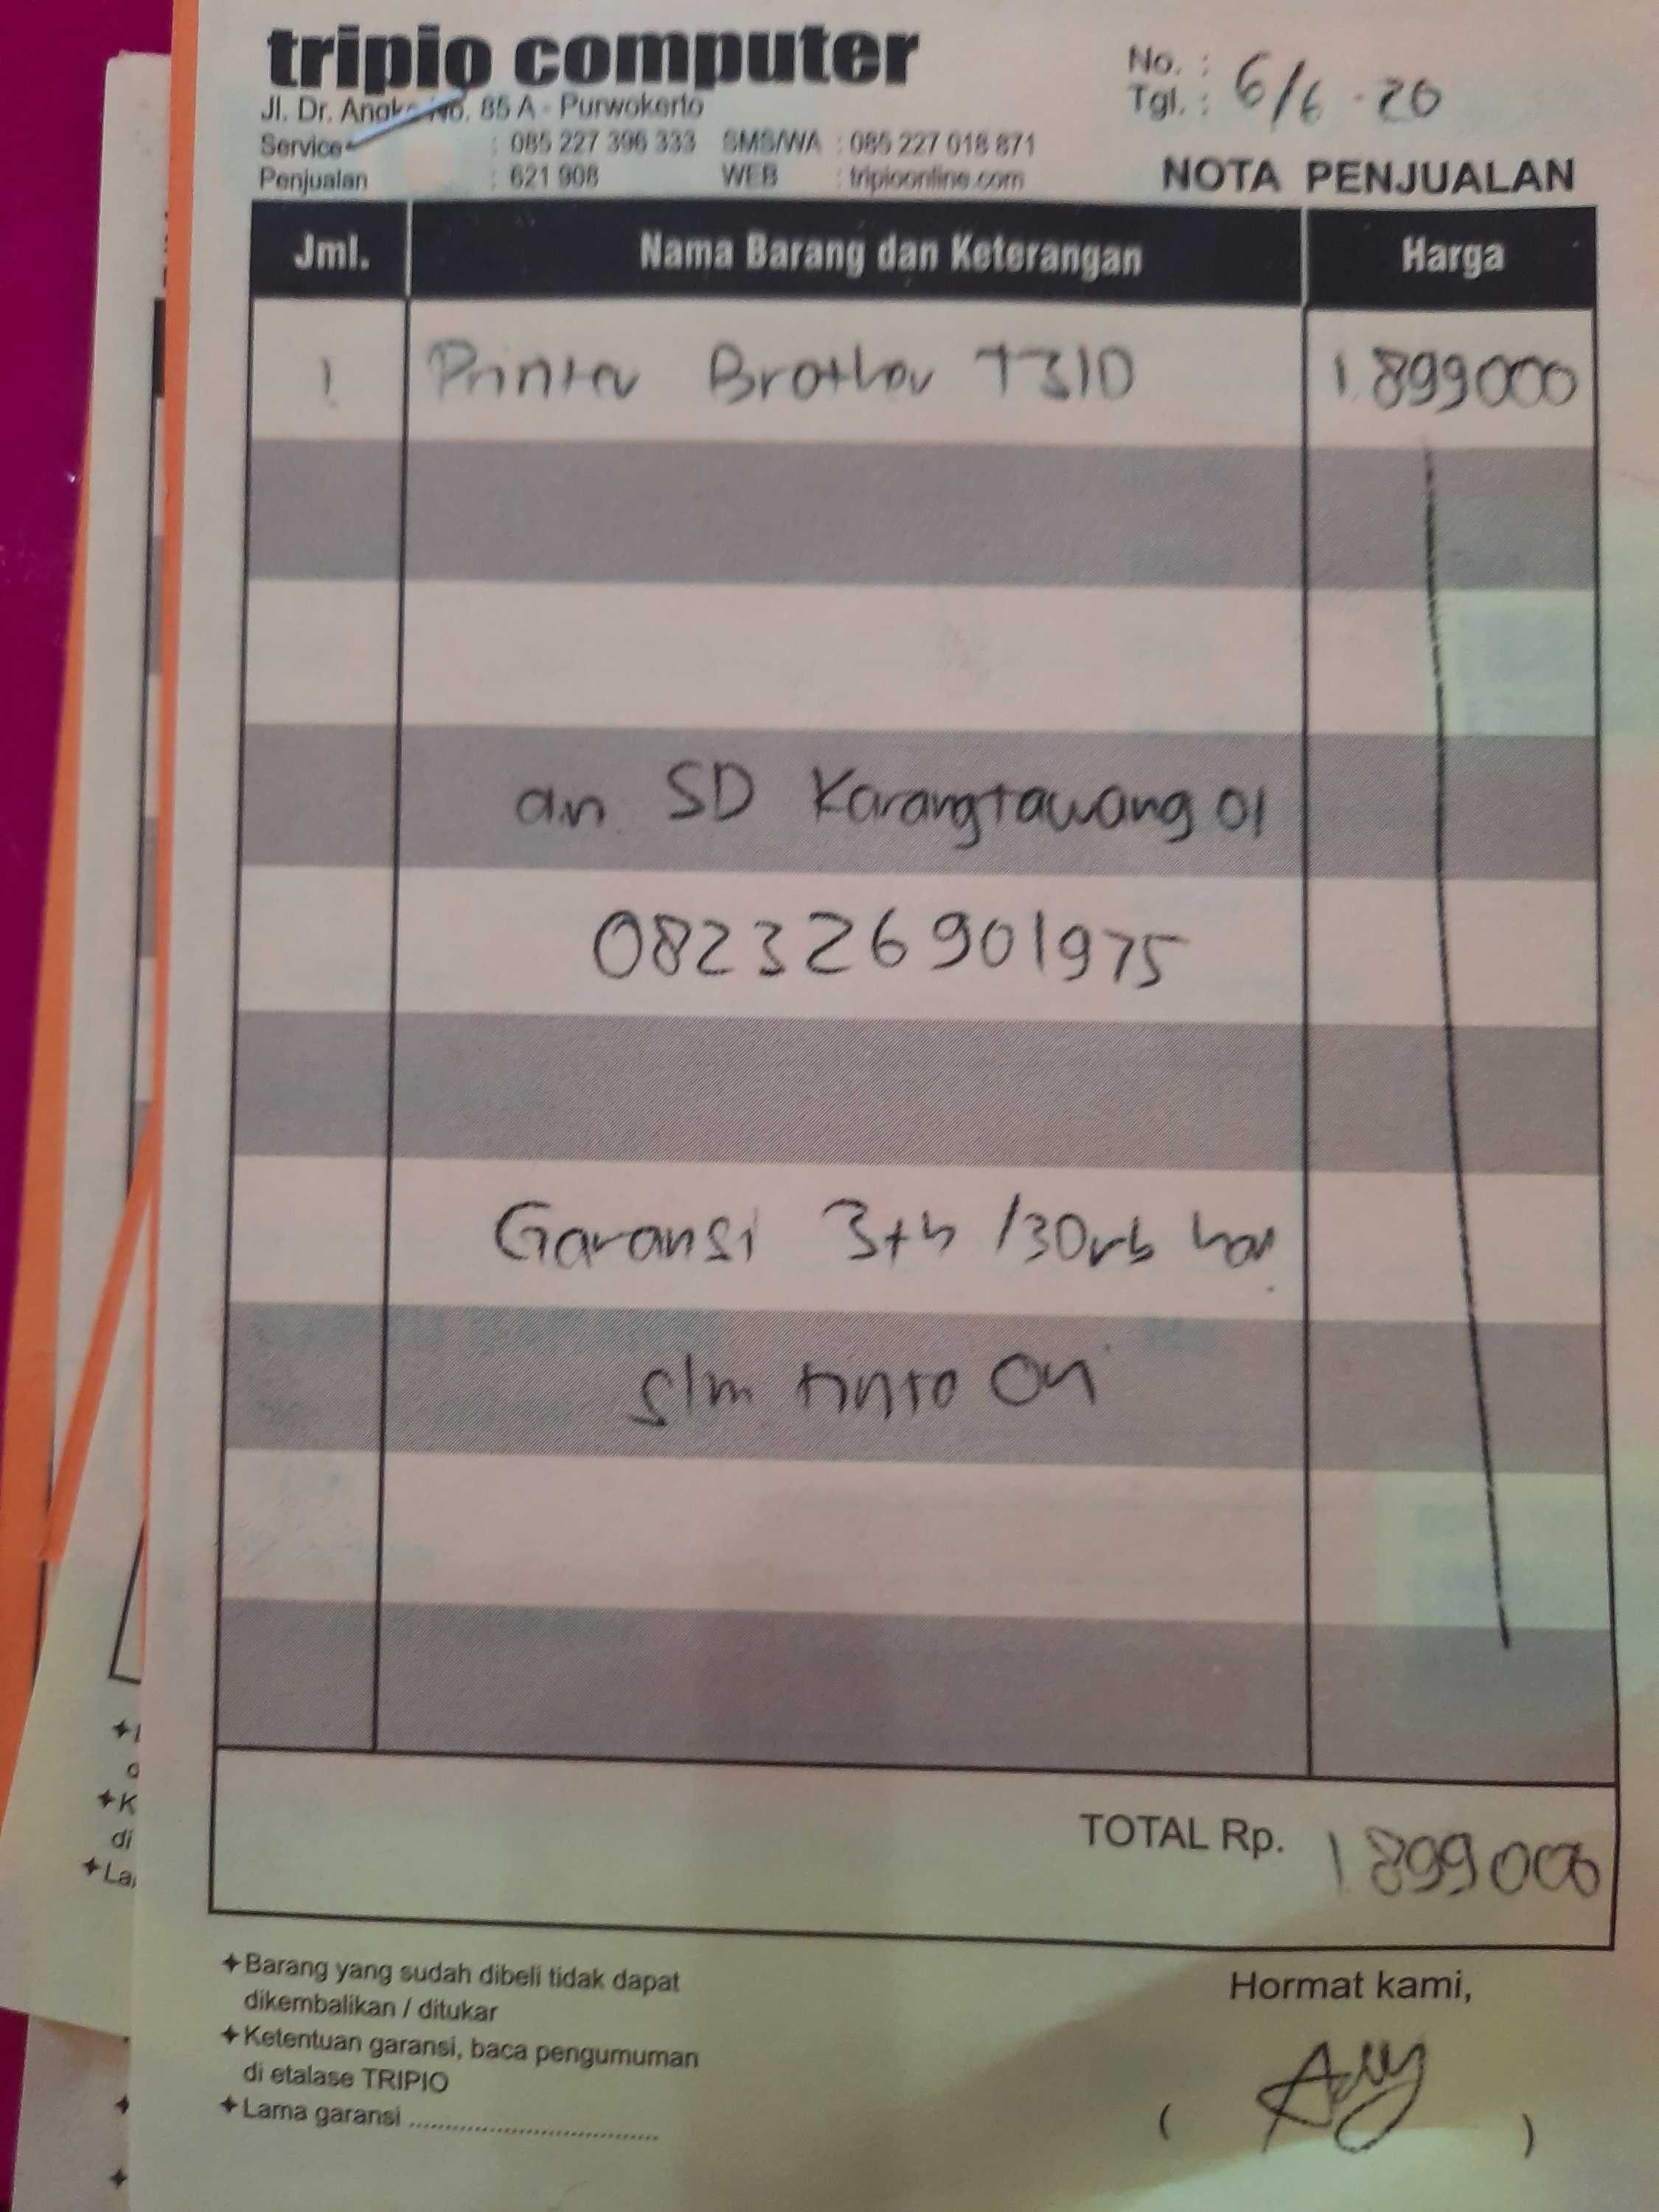 tripio computer
Jl. Dr. Angka No. 85 A - Purwokerto
Service : 085 227 396 333 SMS/WA : 085 227 018 871
Penjualan : 621 908 WEB : tripioonline.com
No. :
Tgl. : 6/6 - 20
NOTA PENJUALAN
Jml. Nama Barang dan Keterangan Harga
1 Printer Brother T310 1.899000
an SD Karangtawang 01
082326901975
Garansi 3th /30rb hal
slm tinta Ori
TOTAL Rp. 1899000
✦ Barang yang sudah dibeli tidak dapat
dikembalikan / ditukar
✦ Ketentuan garansi, baca pengumuman
di etalase TRIPIO
✦ Lama garansi ....................................
Hormat kami,
( )